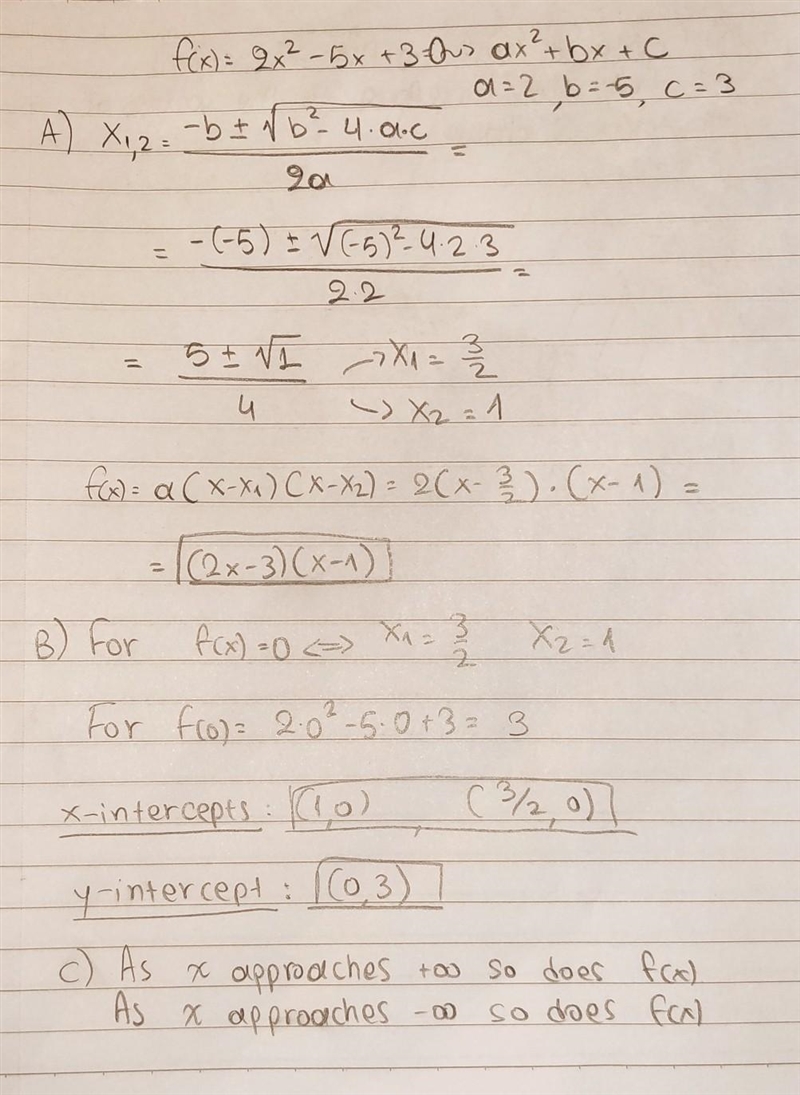 f(x) = 2x² - 5x + 3 = 0 ~> ax² + bx + c
a = 2, b = -5, c = 3
A) X₁,₂ = (-b ± √(b² - 4·a·c)) / 2a =
= (-(-5) ± √((-5)² - 4·2·3)) / 2·2 =
= (5 ± √1) / 4 → X₁ = 3/2
↪ X₂ = 1
f(x) = a(x-x₁)(x-x₂) = 2(x - 3/2)·(x-1) =
= (2x-3)(x-1)
B) For f(x) = 0 <=> X₁ = 3/2 X₂ = 1
For f(0) = 2·0² - 5·0 + 3 = 3
x-intercepts: (1,0) , (3/2, 0)
y-intercept: (0,3)
C) As x approaches +∞ so does f(x)
As x approaches -∞ so does f(x)